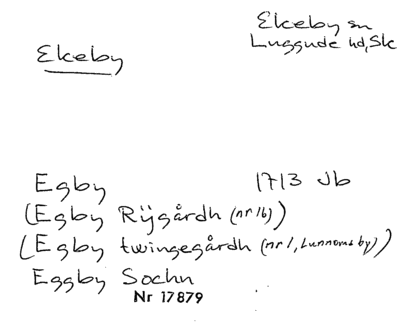 Ekeby
Ekeby sn
Luggude hd, Sk
Egby 1713 Jb
(Egby Rÿgårdh (nr 1b))
(Egby twingegårdh (nr 1, Lunnoms by))
Eggby Sochn
Nr 17879